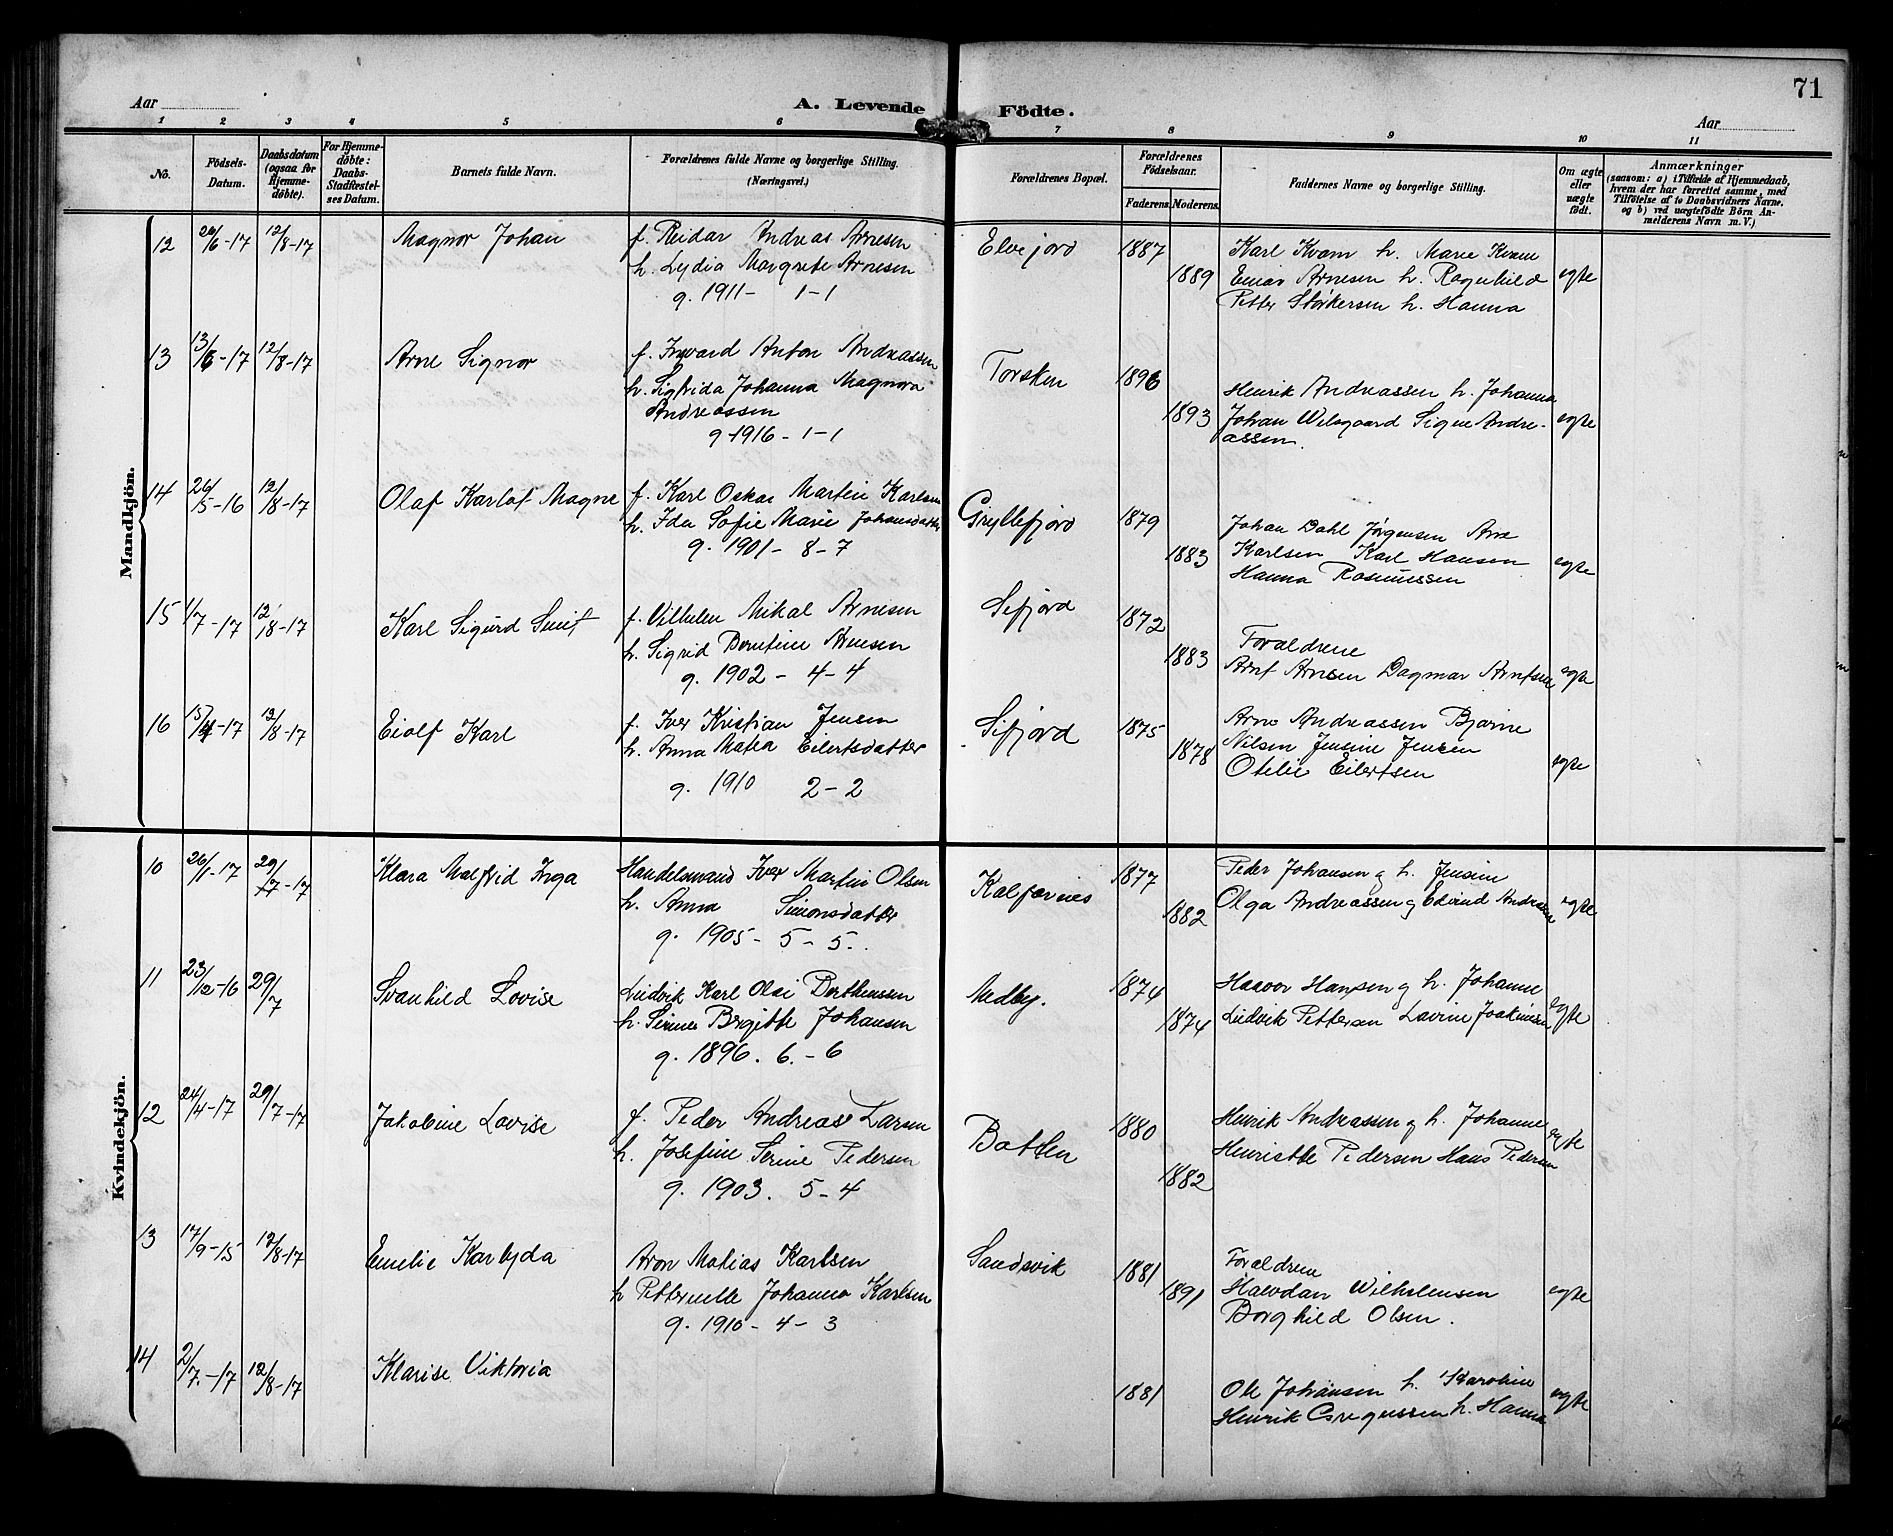 71
Aar
A. Levende Födte.
Aar
1 2 3 4 5 6 7 8 9 10 11
No.
Födsels-Datum.
Daabsdatum (ogsaa for Hjemme-döbte).
For Hjemme-döbte: Daabs-Stadfæstel-ses Datum.
Barnets fulde Navn.
Forældrenes fulde Navne og borgerlige Stilling.
(Næringsvei.)
Forældrenes Bopæl.
Forældrenes Födselsaar.
Faderens. Moderens.
Faddernes Navne og borgerlige Stilling.
Om ægte eller uægte födt.
Anmærkninger
(saasom: a) i Tilfælde af Hjemmedaab,
hvem der har forrettet samme, med
Tilföielse af to Daabsvidners Navne,
og b) ved uægtefödte Börn An-
melderens Navn m. V.)
Mandkjön.
12 20/6-17 12/8-17 Magnor Johan f. Reidar Andreas Arnesen Elvejord 1887 Karl Kvam h. Marie Kvam
h. Lydia Margrete Arnesen 1889 Einar Arnesen h. Ragnhild egte
g. 1911- 1-1 Petter Størkersen h. Hanna
13 13/6-17 12/8-17 Arne Signor f. Ingvard Anton Andreassen Torsken 1896
h. Sigfrida Johanna Magnora Henrik Andreassen h. Johanna
Andreassen 1893 Johan Wilsgaard Signe Andre- egte
g 1916-1-1 assen.
14 26/5-16 12/8-17 Olaf Karlot Magne f. Karl Oskar Martin Karlsen Gryllefjord 1879 Johan Dahl Jørgensen Arne
h. Ida Sofie Marie Johansdatter 1883 Karlsen Karl Hansen egte
g. 1901-8-7 Hanna Rasmussen
15 1/7-17 12/8-17 Karl Sigurd f. Vilhelm Mikal Arnesen Sifjord 1872
h. Sigrid Berntine Arnesen 1883 Forældrene
g. 1902-4-4 Arnt Arnesen Dagmar Arntsen egte
16 15/4-17 12/8-17 Eiolf Karl f. Iver Kristian Jensen Sifjord 1875 Arne Andreassen Bjarne
h. Anna Matea Eilertsdatter 1878 Nilsen Jensine Jensen
g. 1910 2-2 Otelie Eilertsen egte
Kvindekjön.
10 26/1-17 29/7-17 Klara Malfrid Inga Handelsmand Iver Martin Olsen Kalfarnes 1877 Peder Johansen g h. Jensine
h. Anna Simonsdatter 1882 Olga Andreassen g Edvind Andreassen egte
g. 1905-5-5.
11 23/12-16 29/7 Svanhild Lovise Ludvik Karl Olai Berthensen Medby. 1874 Haavor Hansen g h. Johanne
h. Serine Birgitte Johansen 1874 Ludvik Pettersen Lavine Joakimsen egte
g. 1896. 6.-6
12 24/4-17 29/7-17 Jakobine Lovise f. Peder Andreas Larsen Botten 1880 Henrik Andreassen g h. Johanne egte
h. Josefine Serine Pedersen 1882 Henriette Pedersen Hans Pedersen
g. 1903. 5-4
13 17/9-15 12/8-17 Emelie Karlyda Aron Matias Karlsen Sandsvik 1881 Forældrene
h Petternelle Johanna Karlsen 1891 Halvdan Wilhelmsen egte
g. 1910-4-3 Borghild Olsen.
14 2/7.-17 12/8-17 Klarise Viktoria 1881 Ole Johansen h. Karoline egte
Henrik Gregussen h. Hanna